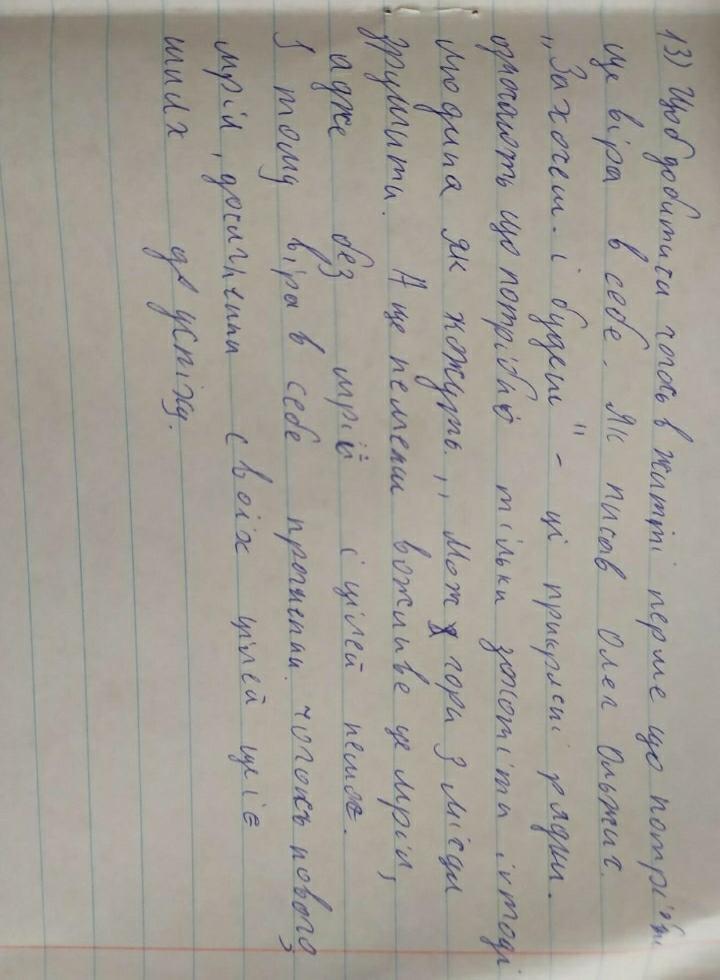 13) Щоб добитися чогось в житті перше що потрібн
це віра в себе. Як писав Олег Ольжич
„Захочеш. і будеш" - ці прикрасні рядки.
означають що потрібно тільки захотіти і тоді
людина як кажуть ,, Може гори з місця
зрушити. А ще неменш важливе це мрія,
адже без мрій і цілей немає.
І тому віра в себе прагнення чогось нового,
мрія, досягнення своїх цілей це і є
шлях до успіху.